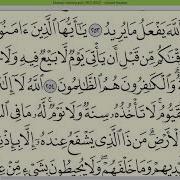 ٱللَّهَ يَفْعَلُ مَا يُرِيدُ ٢٥٣ يَٰٓأَيُّهَا ٱلَّذِينَ ءَامَنُو
قْنَٰكُم مِّن قَبْلِ أَن يَأْتِىَ يَوْمٌ لَّا بَيْعٌ فِيهِ وَلَا
وَٱلْكَٰفِرُونَ هُمُ ٱلظَّٰلِمُونَ ٢٥٤ ٱللَّهُ لَآ إِلَ
قَيُّومُ لَا تَأْخُذُهُۥ سِنَةٌ وَلَا نَوْمٌ لَّهُۥ مَا فِى
لْأَرْضِ مَن ذَا ٱلَّذِى يَشْفَعُ عِندَهُۥٓ إِلَّا بِإِذْنِ
دِيهِمْ وَمَا خَلْفَهُمْ وَلَا يُحِيطُونَ بِشَىْءٍ مِّنْ